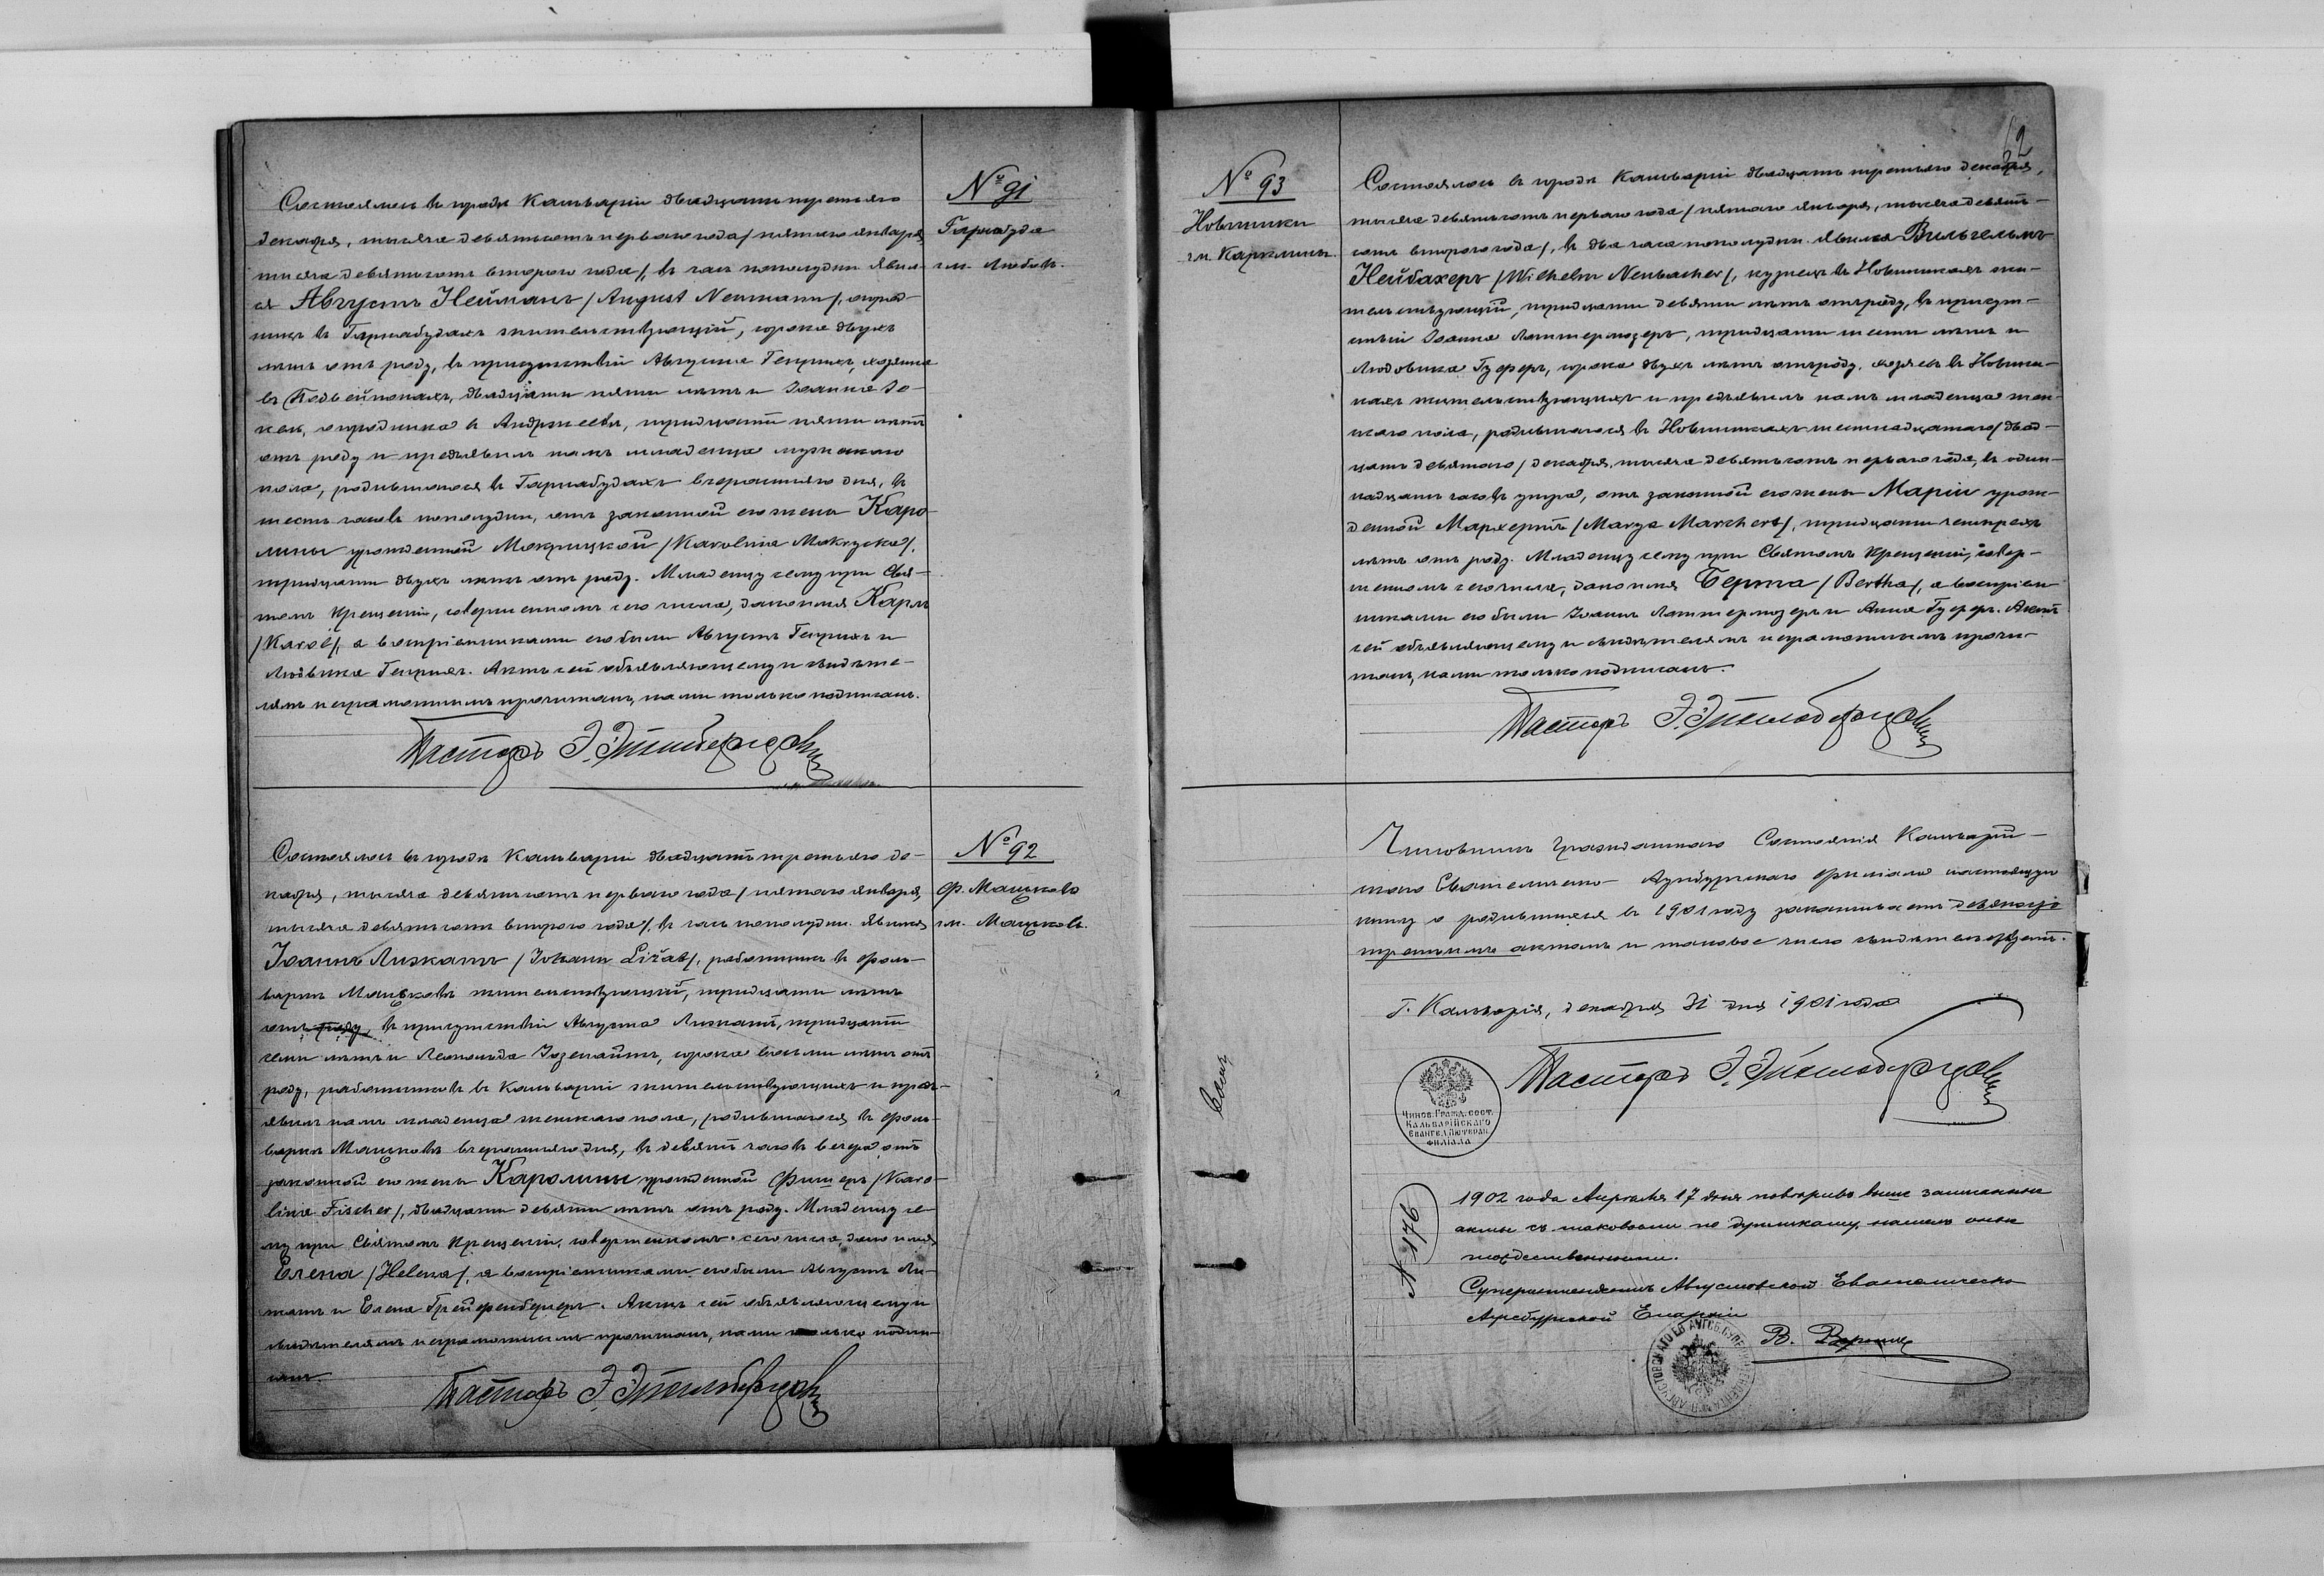 № 91
Гарнабуда
гм. Любовъ.
Состоялось въ городѣ Кальваріи двадцать третьяго
декабря, тысяча девятьсотъ перваго года /пятаго января
тысяча девятьсотъ второго года/, въ часъ пополудни. Явил-
ся Августъ Нейманъ /August Neumann/, огород-
никъ въ Гарнабудахъ жительствующій, сорока двухъ
лѣтъ отъ роду, въ присутствіи Августа Генрихъ, хозяина
въ двадцати пяти лѣтъ и Іоанна Іо-
кель, огородника въ тридцати пяти лѣтъ
отъ роду и предъявилъ намъ младенца мужскаго
пола, родившагося въ Гарнабудахъ вчерашняго дня, въ
шесть часовъ пополудни, отъ законной его жены Каро-
лины урожденной Мокрицкой /Karolina Mokrycka/,
тридцати двухъ лѣтъ отъ роду. Младенцу сему при Свя-
томъ Крещеніи, совершенномъ сего числа, дано имя Карлъ
/Karol/, а воспріемниками его были Августъ Генрихъ и
Людвика Генрихъ. Актъ сей объявляющему и свидѣте-
лямъ неграмотнымъ прочитанъ, нами только подписанъ.
Пасторъ Э.
№ 92
ф. Мацково
гм. Мацково.
Состоялось въ городѣ Кальваріи двадцать третьяго де-
кабря, тысяча девятьсотъ перваго года /пятаго января,
тысяча девятьсотъ второго года/, въ часъ пополудни. Явился
Іоаннъ Лизкатъ /Johann Ližat/, работникъ въ фоль-
варкѣ Мацковѣ жительствующій, тридцати лѣтъ
отъ роду, въ присутствіи Августа Лизкатъ, тридцати
семи лѣтъ и Леопольда сорока восьми лѣтъ отъ
роду, работниковъ въ Кальваріи жительствующихъ и предъ-
явилъ намъ младенца женскаго пола, родившагося въ фоль-
варкѣ Мацковѣ вчерашняго дня, въ девять часовъ вечера отъ
законной его жены Каролины урожденной Фишеръ /Karo-
lina Fischer/, двадцати девяти лѣтъ отъ роду. Младенцу се-
му при Святомъ Крещеніи, совершенномъ сего числа, дано имя
Елена /Helena/, а воспріемниками его были Августъ Ли-
зкатъ и Елена Грейфенбергеръ. Актъ сей объявляющему и
свидѣтелямъ неграмотнымъ прочитанъ, нами только подпи-
санъ.
Пасторъ Э.
62
№ 93
Новинники
гм. Карклины.
Состоялось въ городѣ Кальваріи двадцать третьяго декабря,
тысяча девятьсотъ перваго года /пятаго января, тысяча девять-
сотъ второго года/, въ два часа пополудни. Явился Вильгельмъ
Нейбахеръ /Wilhelm Neubacher/, кузнецъ въ Новинникахъ жи-
тельствующій, тридцати девяти лѣтъ отъ роду, въ присут-
ствіи Іоанна Латтермозеръ, тридцати шести лѣтъ и
Людовика Гуферъ, сорока двухъ лѣтъ отъ роду, хозяевъ въ Новинни-
кахъ жительствующихъ и предъявилъ намъ младенца жен-
скаго пола, родившагося въ Новинникахъ шестнадцатаго /двад-
цать девятаго/ декабря, тысяча девятьсотъ перваго года, въ один-
надцать часовъ утра, отъ законной его жены Маріи урож-
денной Мархертъ /Marya Marchert/, тридцати четырехъ
лѣтъ отъ роду. Младенцу сему при Святомъ Крещеніи, совер-
шенномъ сего числа, дано имя Берта /Bertha/, а воспріем-
никами его были Іоаннъ Латтермозеръ и Анна Гуферъ. Актъ
сей объявляющему и свидѣтелямъ неграмотнымъ прочи-
танъ, нами только подписанъ.
Пасторъ Э.
Чиновникъ Гражданскаго Состоянія Кальварій-
скаго Евангелическо-Аугсбургскаго филіала настоящую
книгу о родившихся въ 1901 году заканчиваетъ девяносто
третьимъ актомъ и таковое число свидѣтельствуетъ.
Г. Кальварія, декабря 31 дня 1901 года
Пасторъ Э.
Чинов. Гражд. сост.
Кальварійскаго
Евангел. Лютеран.
филіала
№ 176
1902 года Апрѣля 17 дня повѣривъ выше записанные
акты съ таковыми по дубликату, нашелъ оные
тождественными.
Суперинтендентъ Августовской Евангелическо
Аугсбургской Епархіи